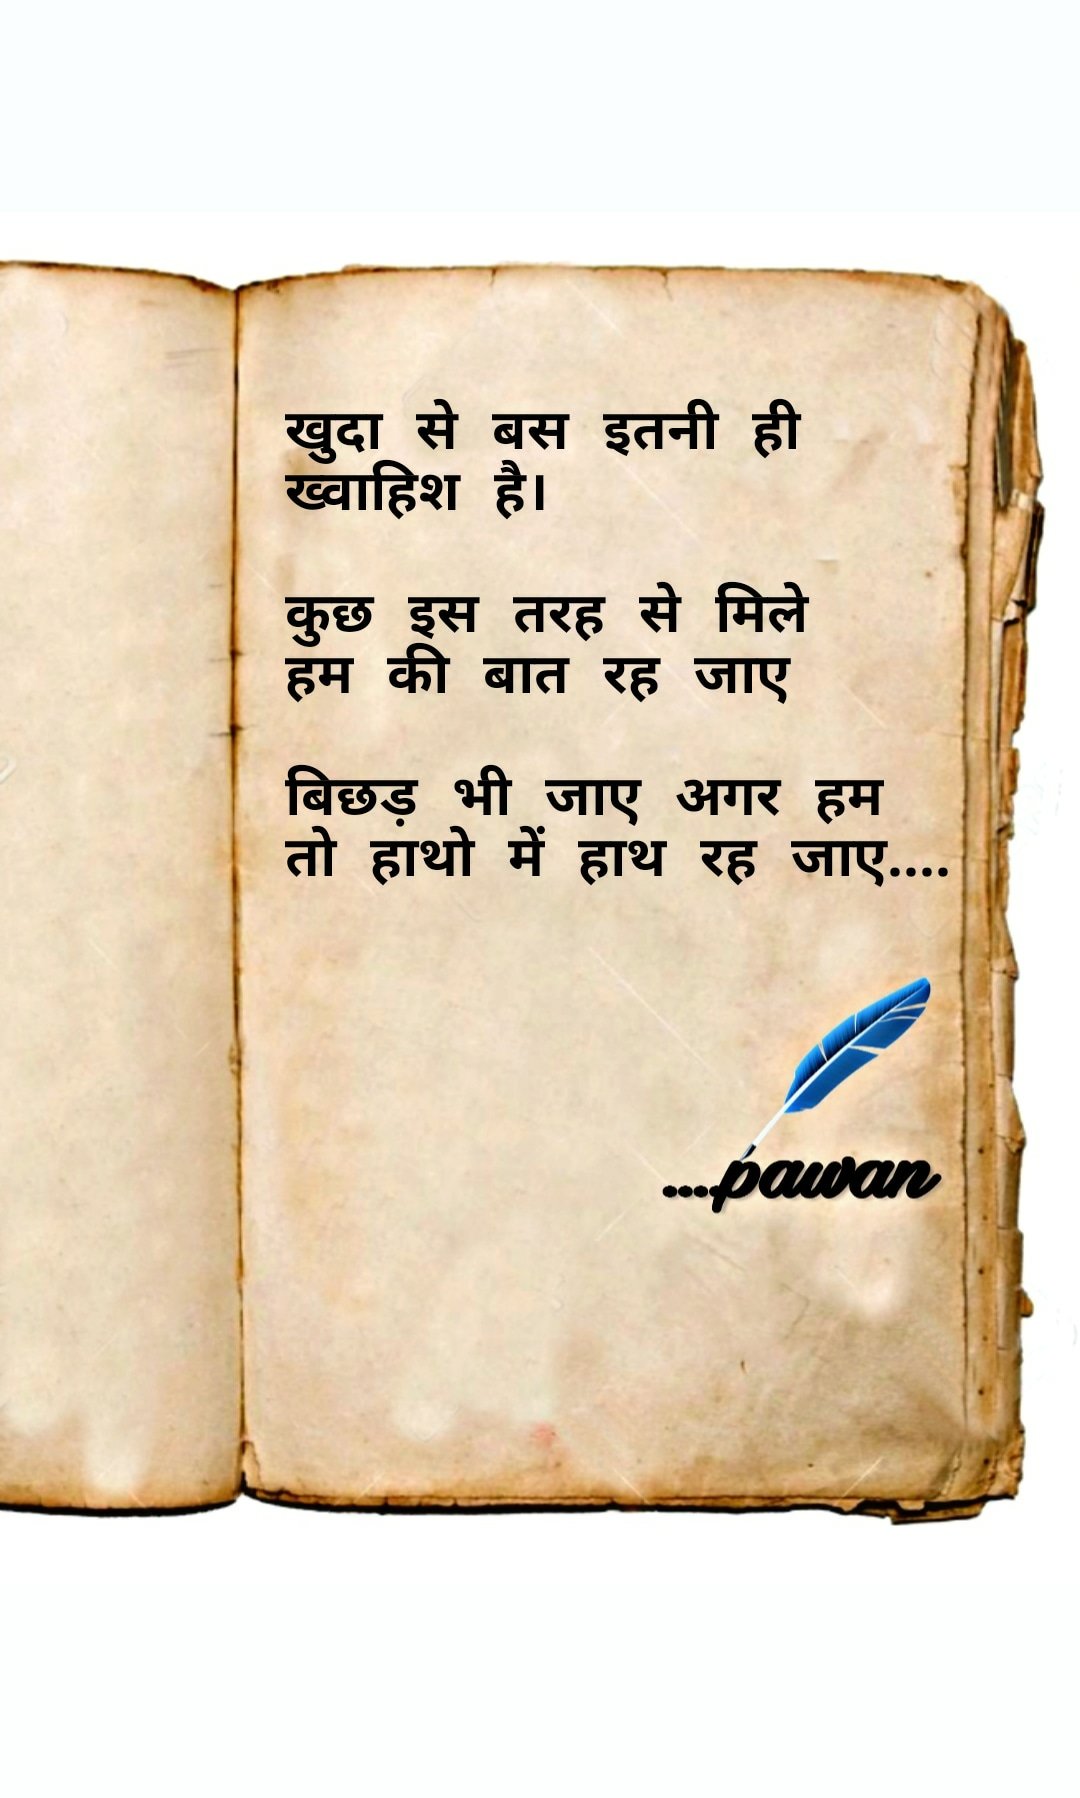 खुदा से बस इतनी ही
ख्वाहिश है।
कुछ इस तरह से मिले
हम की बात रह जाए
बिछड़ भी जाए अगर हम
तो हाथो में हाथ रह जाए....
....pawan